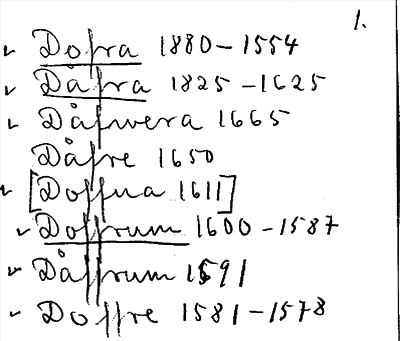 1.
Dofra 1880-1554
Dåfra 1825-1625
Dåfwera 1665
Dåfre 1650
[Doffua 1611]
Doffrum 1600-1587
Dåffrum 1591
Doffre 1581-1578